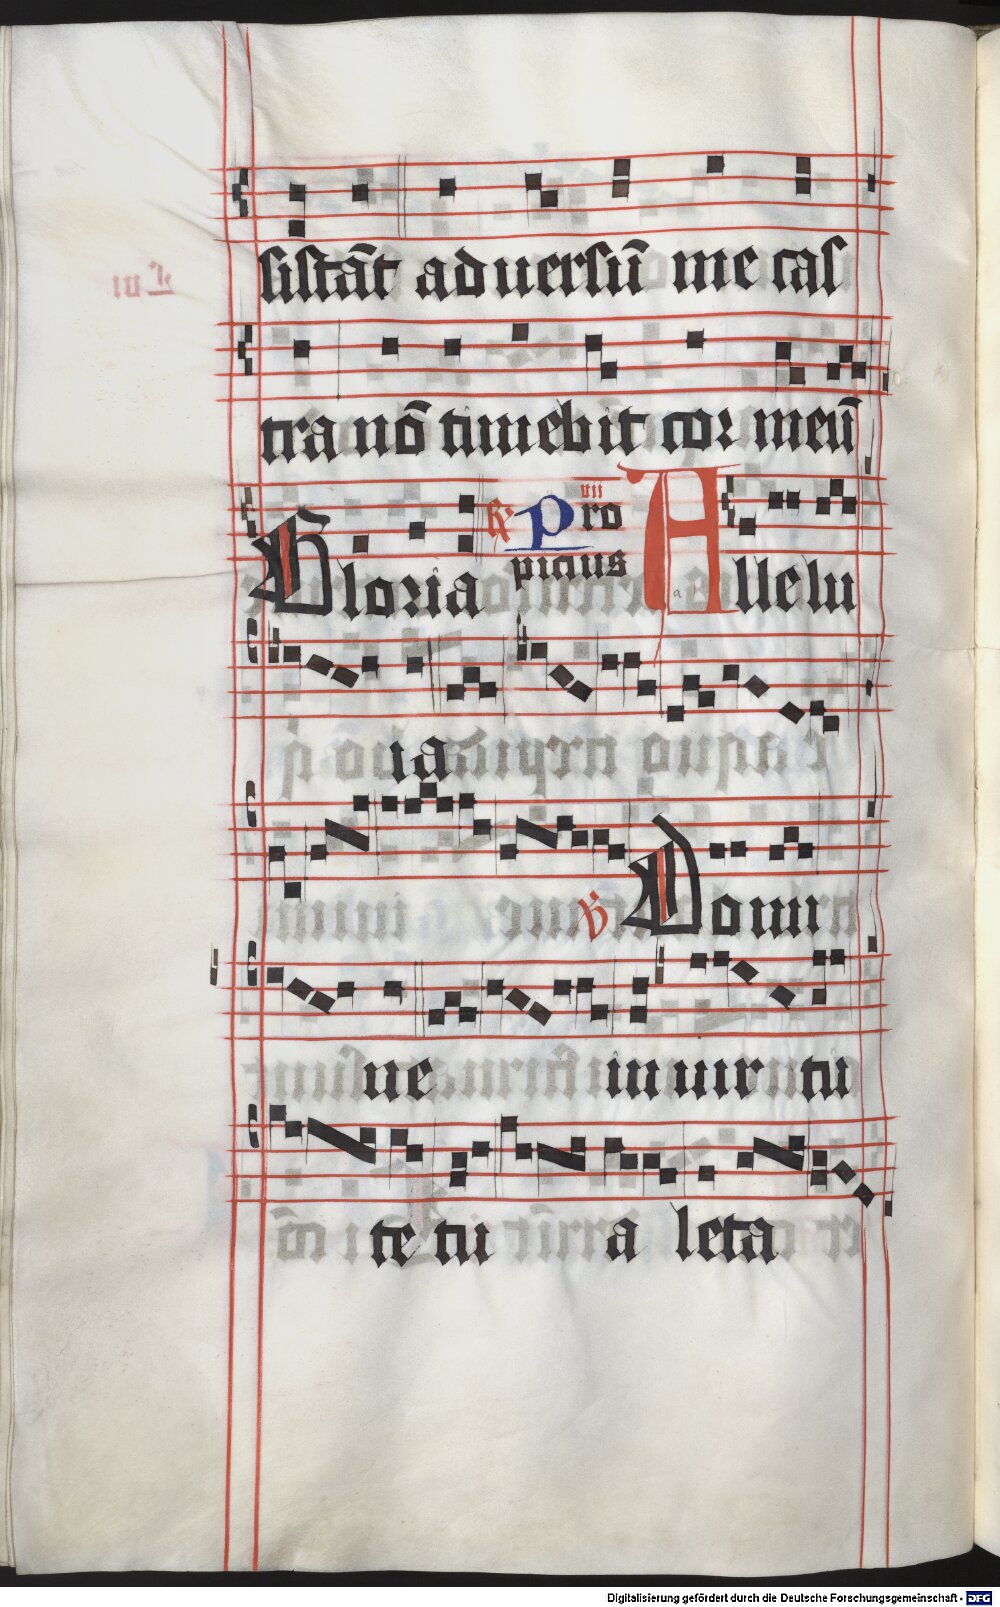 sistāt aduersū me cas
tra nō timebit cor meū
Gloria R' vii Pro Allelu
picius
ia
V Domi
ne in uir tu
te tu a leta
Digitalisierung gefördert durch die Deutsche Forschungsgemeinschaft - DFG